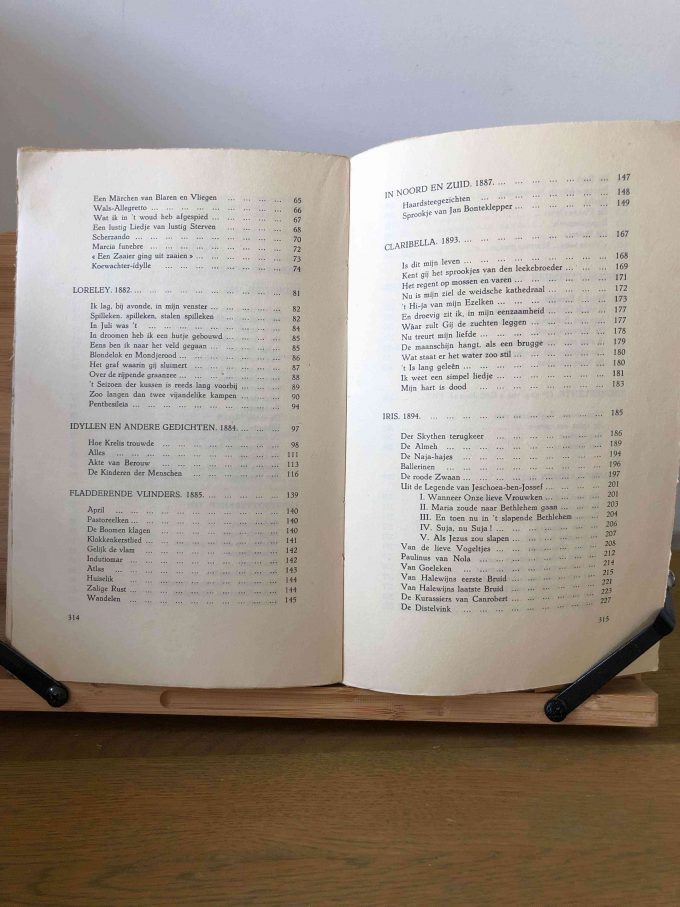 Een Märchen van Blaren en Vliegen ... ... ... ... 65
Wals-Allegretto ... ... ... ... ... ... ... ... 66
Wat ik in 't woud heb afgespied ... ... ... ... ... 67
Een lustig Liedje van lustig Sterven ... ... ... ... 68
Scherzando ... ... ... ... ... ... ... ... 70
Marcia funebre ... ... ... ... ... ... ... ... 72
« Een Zaaier ging uit zaaien » ... ... ... ... ... 73
Koewachter-idylle ... ... ... ... ... ... ... 74
LORELEY. 1882. ... ... ... ... ... ... ... ... 81
Ik lag, bij avonde, in mijn venster ... ... ... ... 82
Spilleken, spilleken, stalen spilleken ... ... ... ... 82
In Juli was 't ... ... ... ... ... ... ... ... 84
In droomen heb ik een hutje gebouwd ... ... ... ... 85
Eens ben ik naar het veld gegaan ... ... ... ... 85
Blondelok en Mondjerood ... ... ... ... ... ... 86
Het graf waarin gij sluimert ... ... ... ... ... 87
Over de rijpende graanzee ... ... ... ... ... ... 88
't Seizoen der kussen is reeds lang voorbij ... ... ... 89
Zoo langen dan twee vijandelijke kampen ... ... ... 90
Penthesileia ... ... ... ... ... ... ... ... 94
IDYLLEN EN ANDERE GEDICHTEN. 1884. ... ... ... 97
Hoe Krelis trouwde ... ... ... ... ... ... ... 98
Alles ... ... ... ... ... ... ... ... ... 111
Akte van Berouw ... ... ... ... ... ... ... 113
De Kinderen der Menschen ... ... ... ... ... ... 116
FLADDERENDE VLINDERS. 1885. ... ... ... ... ... 139
April ... ... ... ... ... ... ... ... ... 140
Pastoreelken ... ... ... ... ... ... ... ... 140
De Boomen klagen ... ... ... ... ... ... ... 140
Klokkenkerstlied ... ... ... ... ... ... ... 141
Gelijk de vlam ... ... ... ... ... ... ... ... 142
Indutiomar ... ... ... ... ... ... ... ... 142
Atlas ... ... ... ... ... ... ... ... ... 143
Huiselik ... ... ... ... ... ... ... ... 144
Zalige Rust ... ... ... ... ... ... ... ... 144
Wandelen ... ... ... ... ... ... ... ... 145
314
IN NOORD EN ZUID. 1887. ... ... ... ... ... ... 147
Haardsteegezichten ... ... ... ... ... ... ... 148
Sprookje van Jan Bonteklepper ... ... ... ... ... 149
CLARIBELLA. 1893. ... ... ... ... ... ... ... 167
Is dit mijn leven ... ... ... ... ... ... ... 168
Kent gij het sprookjes van den leekebroeder ... ... ... 169
Het regent op mossen en varen ... ... ... ... ... 171
Nu is mijn ziel de weidsche kathedraal ... ... ... 172
't Hi-ja van mijn Ezelken ... ... ... ... ... 173
En droevig zit ik, in mijn eenzaamheid ... ... ... 177
Waar zult Gij de zuchten leggen ... ... ... ... 177
Nu treurt mijn liefde ... ... ... ... ... ... 178
De maanschijn hangt, als een brugge ... ... ... ... 179
Wat staat er het water zoo stil ... ... ... ... ... 180
't Is lang geleên ... ... ... ... ... ... ... 180
Ik weet een simpel liedje ... ... ... ... ... ... 181
Mijn hart is dood ... ... ... ... ... ... ... 183
IRIS. 1894. ... ... ... ... ... ... ... ... 185
Der Skythen terugkeer ... ... ... ... ... ... 186
De Almeh ... ... ... ... ... ... ... ... 189
De Naja-hajes ... ... ... ... ... ... ... 194
Ballerinen ... ... ... ... ... ... ... ... 196
De roode Zwaan ... ... ... ... ... ... ... 197
Uit de Legende van Jeschoea-ben-Jossef ... ... ... ... 201
I. Wanneer Onze lieve Vrouwken ... ... ... ... 201
II. Maria zoude naar Bethlehem gaan ... ... ... 203
III. En toen nu in 't slapende Bethlehem ... ... ... 204
IV. Suja, nu Suja ! ... ... ... ... ... ... 206
V. Als Jezus zou slapen ... ... ... ... ... 207
Van de lieve Vogeltjes ... ... ... ... ... ... 208
Paulinus van Nola ... ... ... ... ... ... ... 212
Van Goeleken ... ... ... ... ... ... ... 214
Van Halewijns eerste Bruid ... ... ... ... ... 215
Van Halewijns laatste Bruid ... ... ... ... ... 221
De Kurassiers van Canrobert ... ... ... ... ... 223
De Distelvink ... ... ... ... ... ... ... 227
315